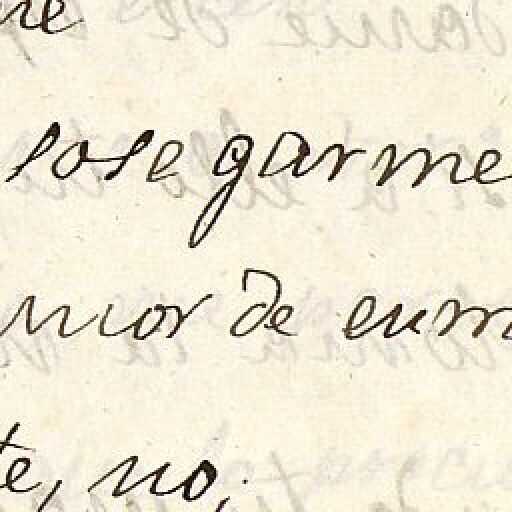 ne
sosegarme
mior de eum
te, no;